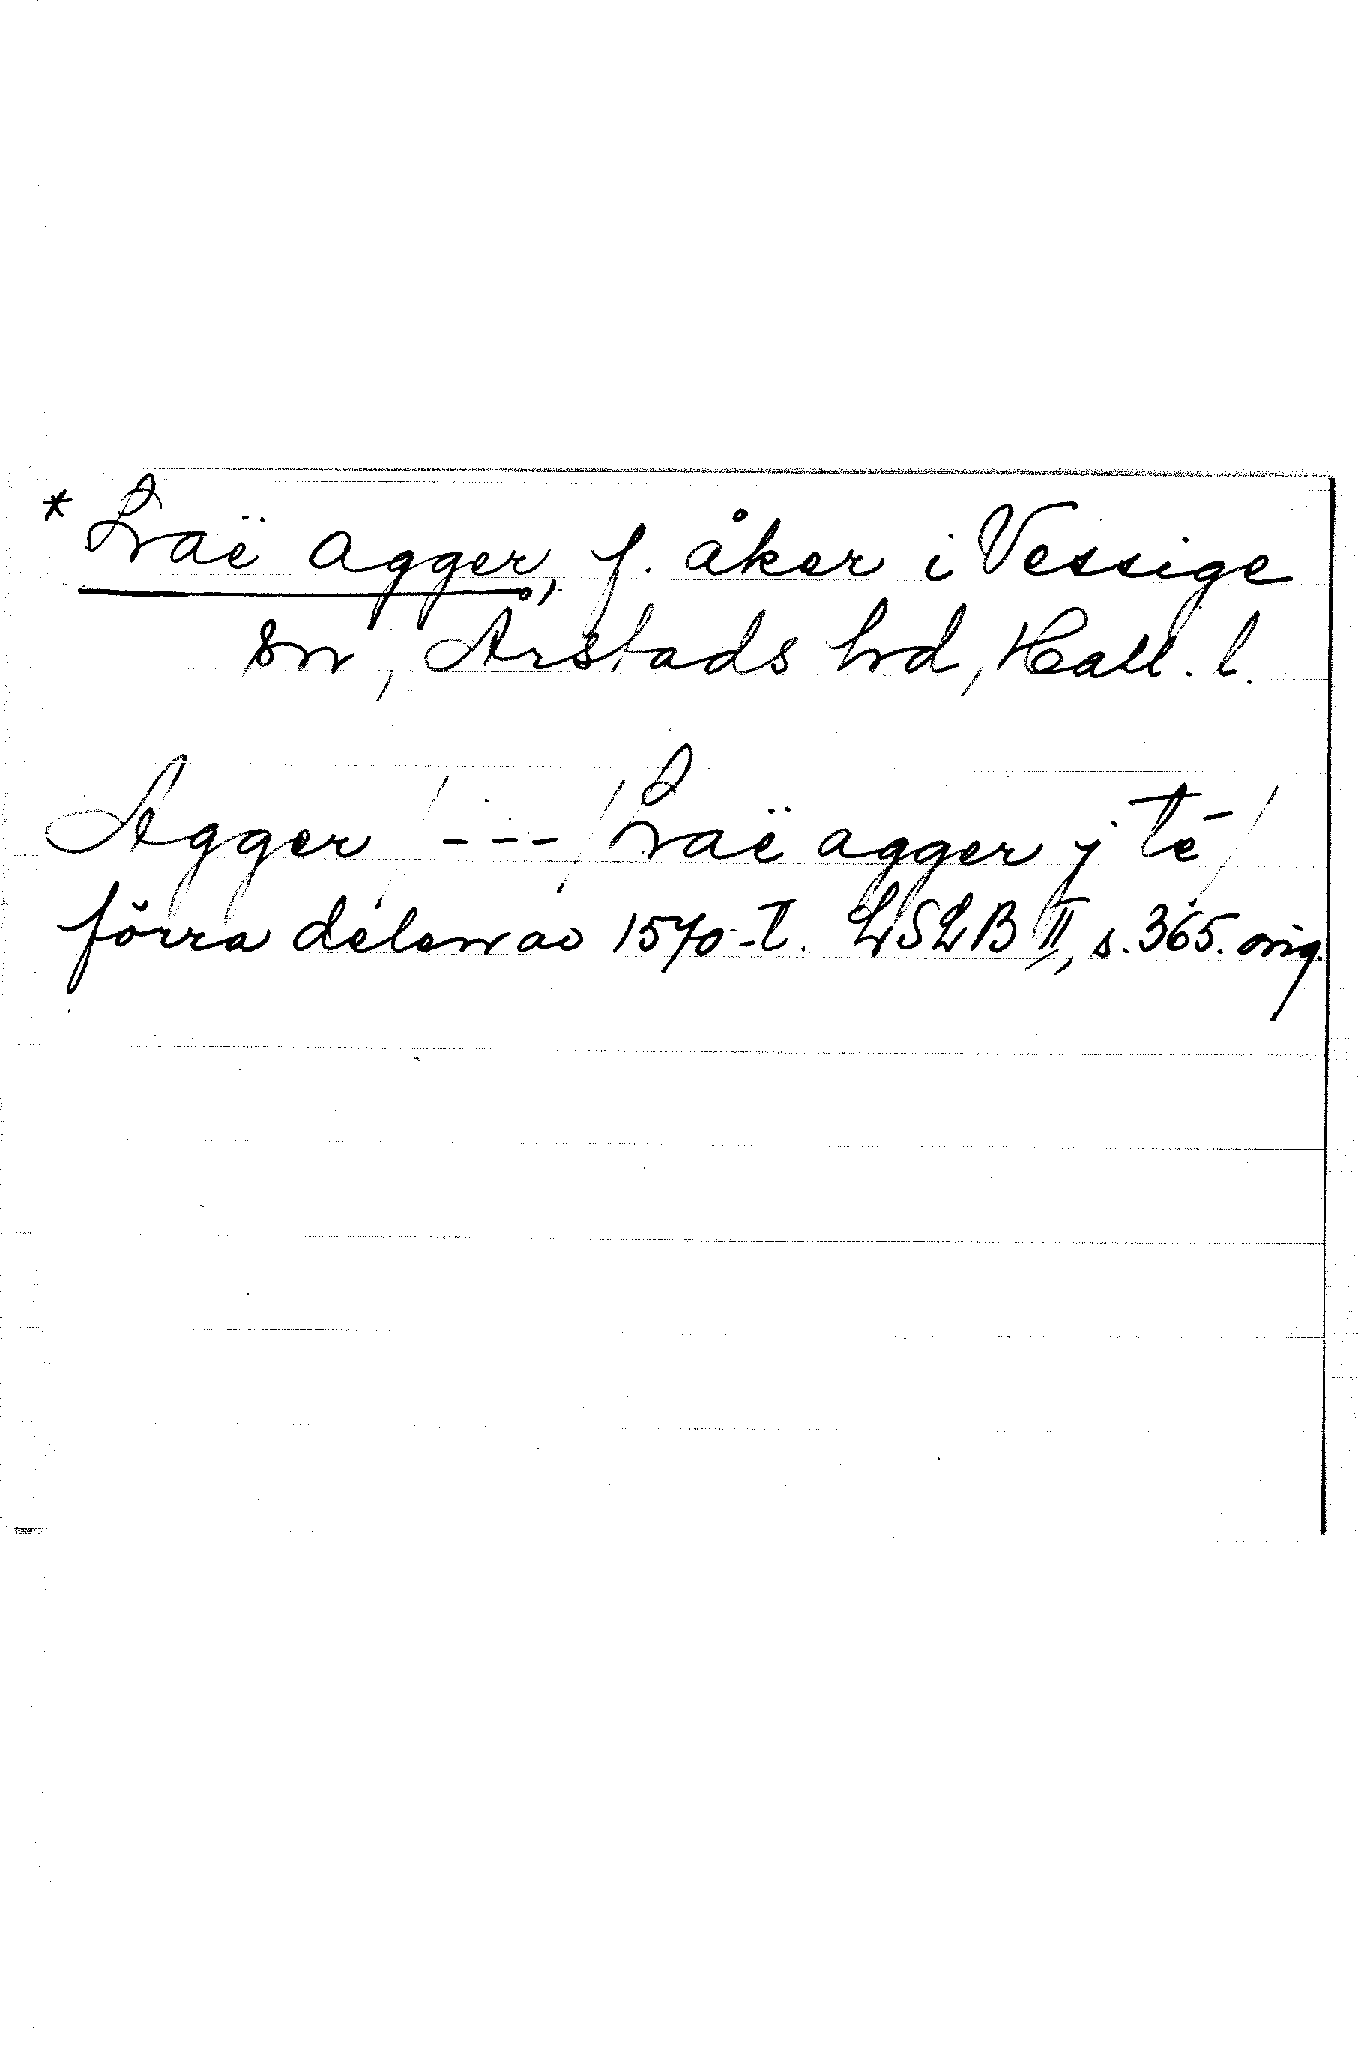 * Lvaë agger, f. åker i Vessige
sn, Årstads hd, Hall. l.
Agger / --- / Lvaë agger j té /
förra delen av 1570-t. LSLB II, s. 365. orig.